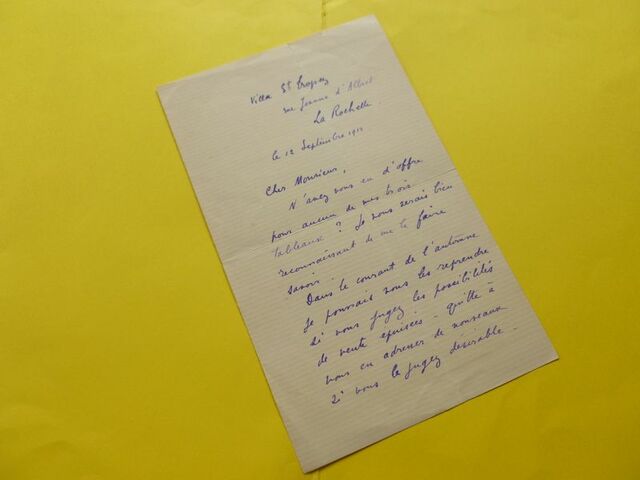 Villa St Tropez
rue Jeanne d'Albret
La Rochelle.
le 12 Septembre
Cher Monsieur,
N'avez vous eu d'offre
pour aucun de mes trois
tableaux ? Je vous serais bien
reconnaissant de me le faire
savoir.
Dans le courant de l'automne
je pourrais vous les reprendre
si vous jugez les possibilités
de vente épuisées - quitte à
vous en adresser de nouveaux
si vous le jugez désirable.